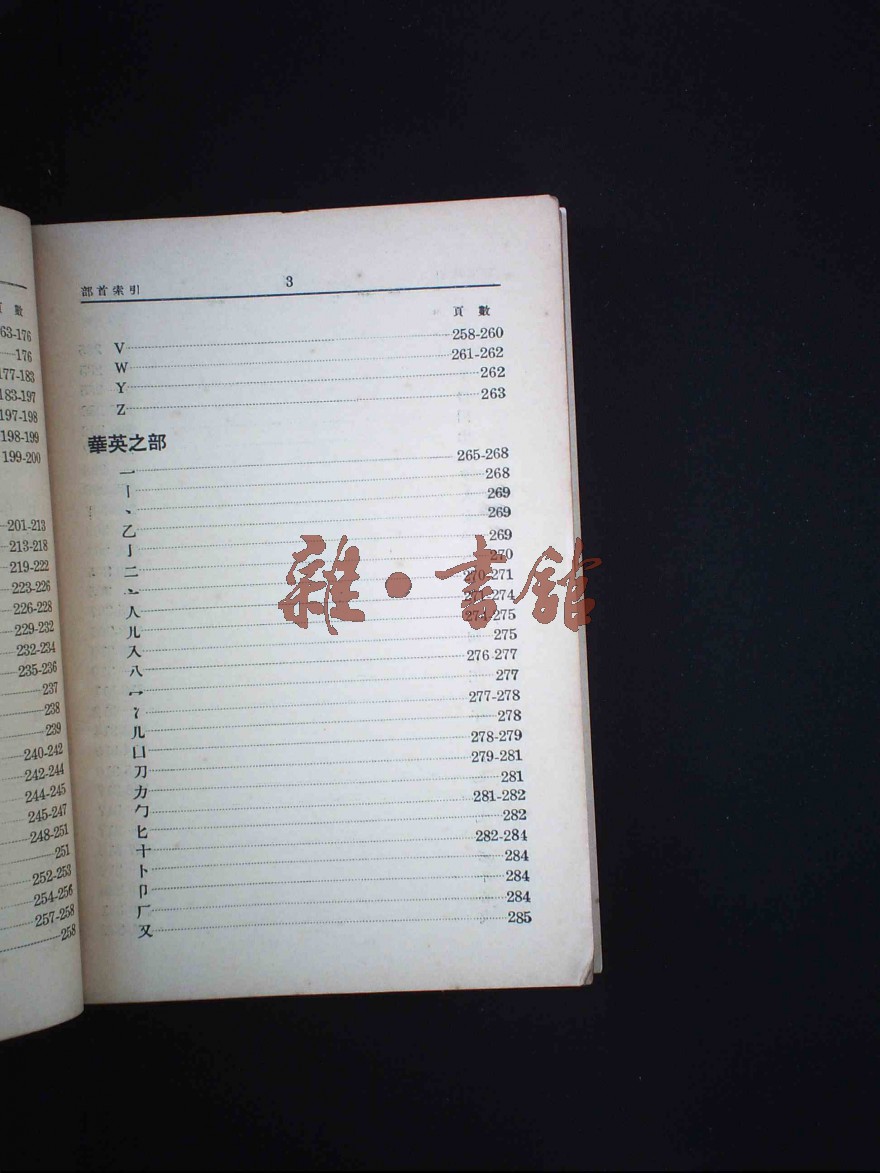 頁 數
63-176
176
177-183
183-197
197-198
198-199
199-200
201-213
213-218
219-222
223-226
226-228
229-232
232-234
235-236
237
238
239
240-242
242-244
244-245
245-247
248-251
251
252-253
254-256
257-258
258
部首索引 3
頁 數
V 258-260
W 261-262
Y 262
Z 263
華英之部
一 265-268
丨 268
丶 269
乙 269
亅 269
二 270
亠 270-271
人 271-274
儿 274-275
入 275
八 276-277
冖 277
冫 277-278
几 278
凵 278-279
刀 279-281
力 281
勹 281-282
匕 282
十 282-284
卜 284
卩 284
厂 284
又 285
雜·書館